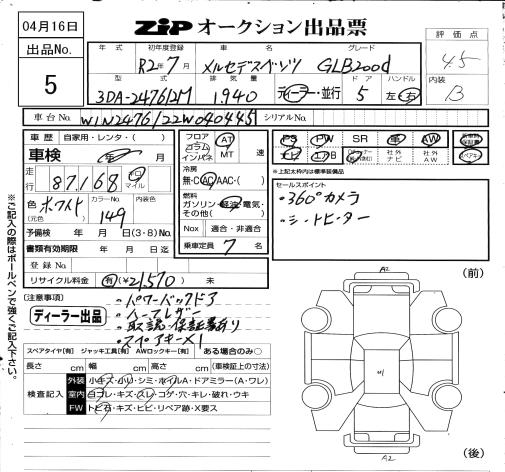 04月16日
ZiP オークション出品票
出品No.
5
評価点
4.5
内装
B
年式
初年度登録
車名
グレード
R2年7月
メルセデスベンツ
GLB200d
型式
排気量
ドア
ハンドル
3DA-247612M
1.940
ディーラー・並行
5
左・右
車台No.
W1N2476122W040445
シリアルNo.
車歴
自家用・レンタ・( )
車検
年 月
走行
87,168
キロ
マイル
色
(元色)
ホワイト
カラーNo.
149
内装色
予備検 年 月 日(3・8)No.
書類有効期限 年 月 日迄
登録No.
リサイクル料金 有(¥21,570) 未
フロア
コラム
インパネ
AT
MT
速
冷房
無・C・AC・AAC・( )
燃料
ガソリン・軽油・電気・
その他( )
Nox
適合・非適合
乗車定員 7 名
PS
PW
SR
革
AW
ナビ
エアB
社外ナビ
社外AW
※上記太枠内は標準装備品
セールスポイント
・360°カメラ
・シートヒーター
(注意事項)
ディーラー出品
・パワーバックドア
・ハーフレザー
・取説・保証書有り
・スペアキー×1
スペアタイヤ[有] ジャッキ工具[有] AWロックキー[有] ある場合のみ○
長さ cm 幅 cm 高さ cm (車検証上の寸法)
検査記入
外装
小キズ・小リ・シミ・ホイルA・ドアミラー(A・ワレ)
室内
白ブレ・キズ・スレ・コゲ・穴・キレ・破れ・ウキ
FW
トビ石・キズ・ヒビ・リペア跡・X要ス
※ご記入の際はボールペンで強くご記入下さい。
(前)
A2
A2
(後)